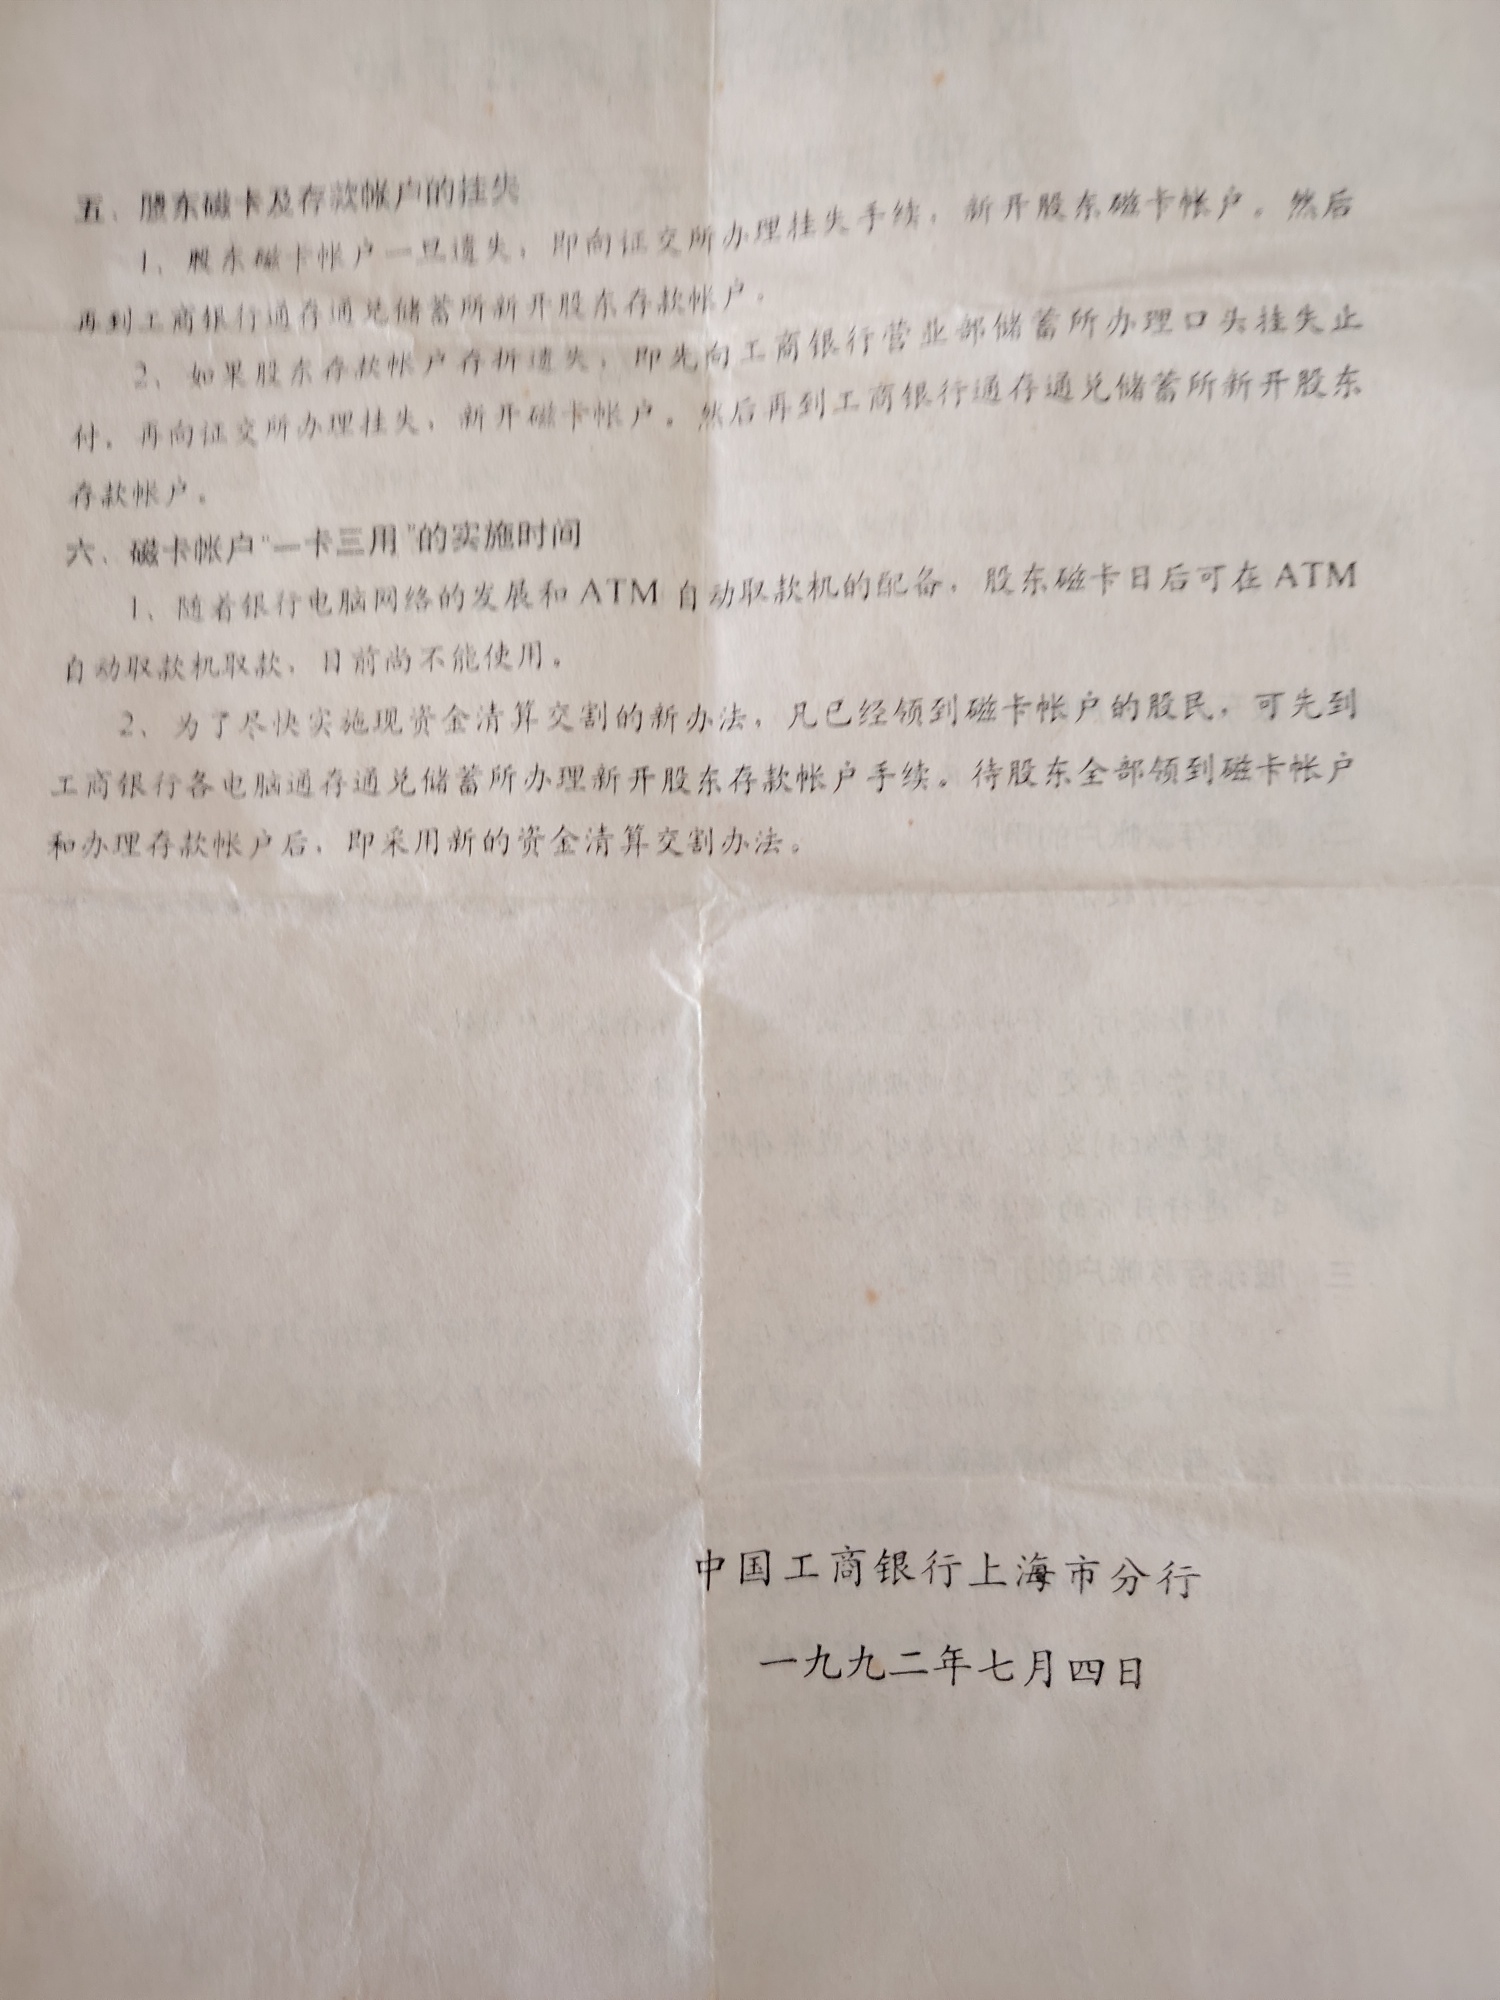 五、股东磁卡及存款帐户的挂失
1、股东磁卡帐户一旦遗失，即向证交所办理挂失手续，新开股东磁卡帐户。然后
再到工商银行通存通兑储蓄所新开股东存款帐户。
2、如果股东存款帐户存折遗失，即先向工商银行营业部储蓄所办理口头挂失止
付，再向证交所办理挂失，新开磁卡帐户。然后再到工商银行通存通兑储蓄所新开股东
存款帐户。
六、磁卡帐户“一卡三用”的实施时间
1、随着银行电脑网络的发展和ATM自动取款机的配备，股东磁卡日后可在ATM
自动取款机取款，目前尚不能使用。
2、为了尽快实施现资金清算交割的新办法，凡已经领到磁卡帐户的股民，可先到
工商银行各电脑通存通兑储蓄所办理新开股东存款帐户手续。待股东全部领到磁卡帐户
和办理存款帐户后，即采用新的资金清算交割办法。
中国工商银行上海市分行
一九九二年七月四日